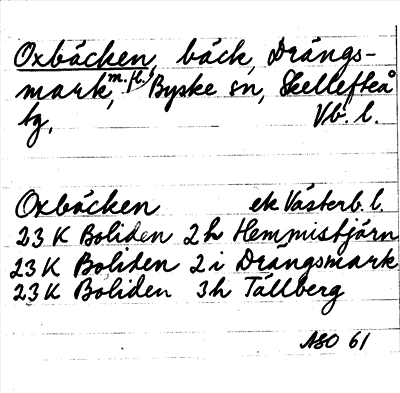 Oxbäcken, bäck, Drängs-
mark, m.fl. Byske sn, Skellefteå
tg, Vb. l.
Oxbäcken ek Västerb. l.
23 K Boliden 2 h Hemmistjärn
23 K Boliden 2 i Drängsmark
23 K Boliden 3h Tällberg
ASO 61